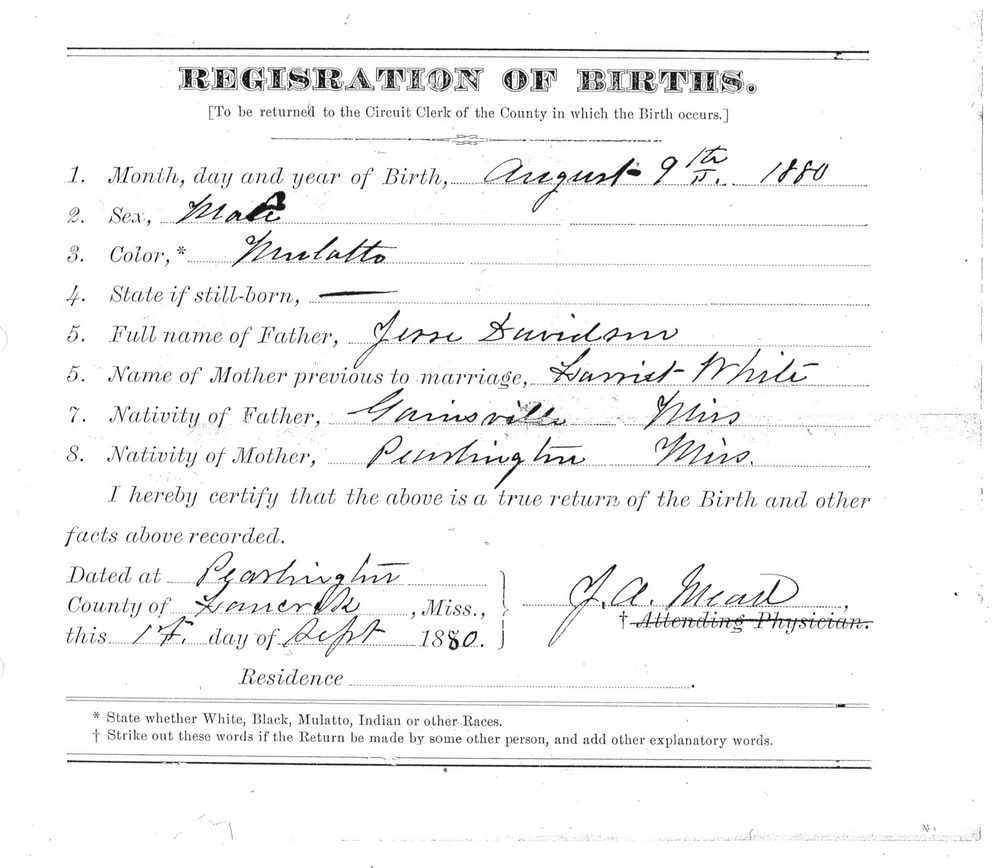 REGISRATION OF BIRTHS.
[To be returned to the Circuit Clerk of the County in which the Birth occurs.]
1. Month, day and year of Birth, August 9th 1880
2. Sex, Male
3. Color,* Mulatto
4. State if still-born, —
5. Full name of Father, Jesse Davidson
5. Name of Mother previous to marriage, Harriet White
7. Nativity of Father, Gainsville Miss
8. Nativity of Mother, Pearlington Miss.
I hereby certify that the above is a true return of the Birth and other
facts above recorded.
Dated at Pearlington
County of Hancock, Miss.,
this 1st. day of Sept 1880.
J. A. Mead,
† Attending Physician.
Residence .
* State whether White, Black, Mulatto, Indian or other Races.
† Strike out these words if the Return be made by some other person, and add other explanatory words.